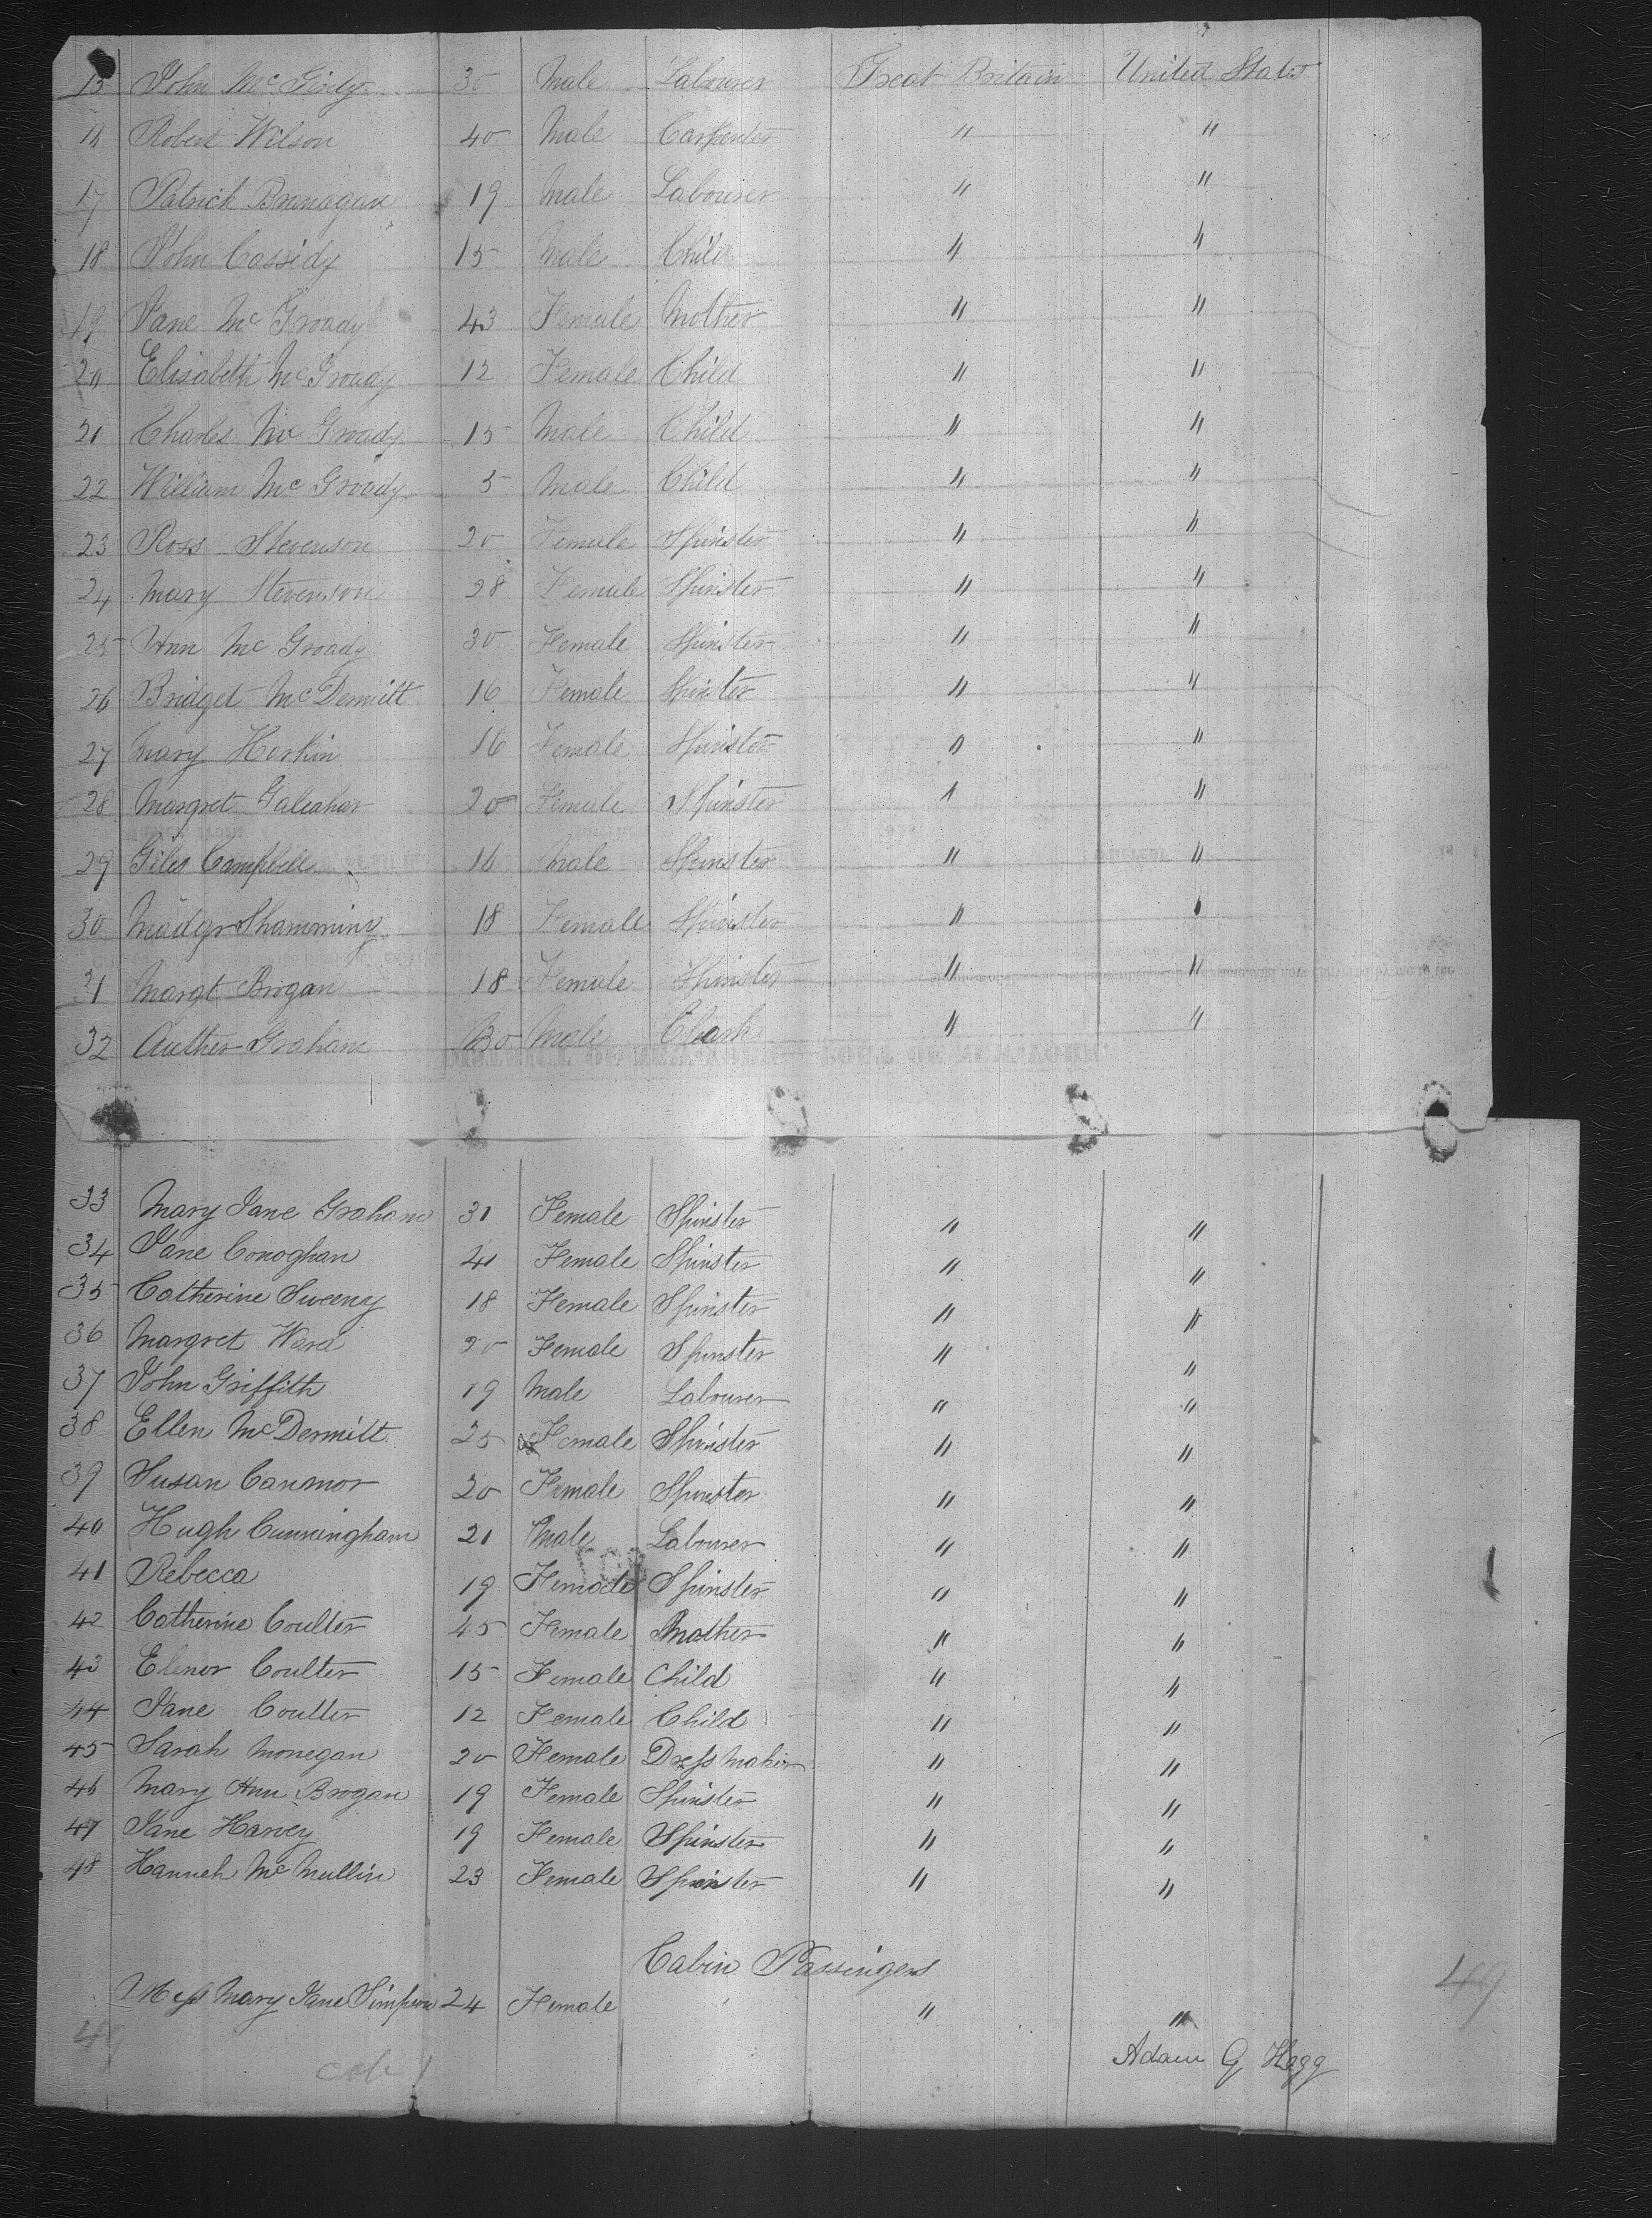 15 John McGirdy 30 Male Labourer Great Britain United States
16 Robert Wilson 40 Male Carpenter " "
17 Patrick Branagan 19 Male Labourer " "
18 John Cassidy 15 Male Child " "
19 Jane McGroady 43 Female Mother " "
20 Elisabeth McGroady 12 Female Child " "
21 Charles McGroady 15 Male Child " "
22 William McGroady 5 Male Child " "
23 Ross Stevenson 20 Female Spinster " "
24 Mary Stevenson 28 Female Spinster " "
25 Ann McGroady 30 Female Spinster " "
26 Bridget McDermitt 16 Female Spinster " "
27 Mary Horkin 16 Female Spinster " "
28 Margret Galeahar 20 Female Spinster " "
29 Giles Campbell 16 Male Spinster " "
30 Shamming 18 Female Spinster " "
31 Margt Brogan 18 Female Spinster " "
32 Auther Graham 30 Male Clark " "
33 Mary Jane Graham 31 Female Spinster " "
34 Jane Conoghan 21 Female Spinster " "
35 Catherine Sweeny 18 Female Spinster " "
36 Margret Ward 20 Female Spinster " "
37 John Griffith 19 Male Labourer " "
38 Ellen McDermitt 25 Female Spinster " "
39 Susan Canonor 20 Female Spinster " "
40 Hugh Cunningham 21 Male Labourer " "
41 Rebecca 19 Female Spinster " "
42 Catherine Coulter 45 Female Mother " "
43 Elenor Coulter 15 Female Child " "
44 Jane Coulter 12 Female Child " "
45 Sarah Monegan 20 Female Dress Maker " "
46 Mary Ann Brogan 19 Female Spinster " "
47 Jane Harvey 19 Female Spinster " "
48 Hannah McMullin 23 Female Spinster " "
Cabin Passingers
Miss Mary Jane Simpson 24 Female " "
49
49
Adam G Hogg
cab 1